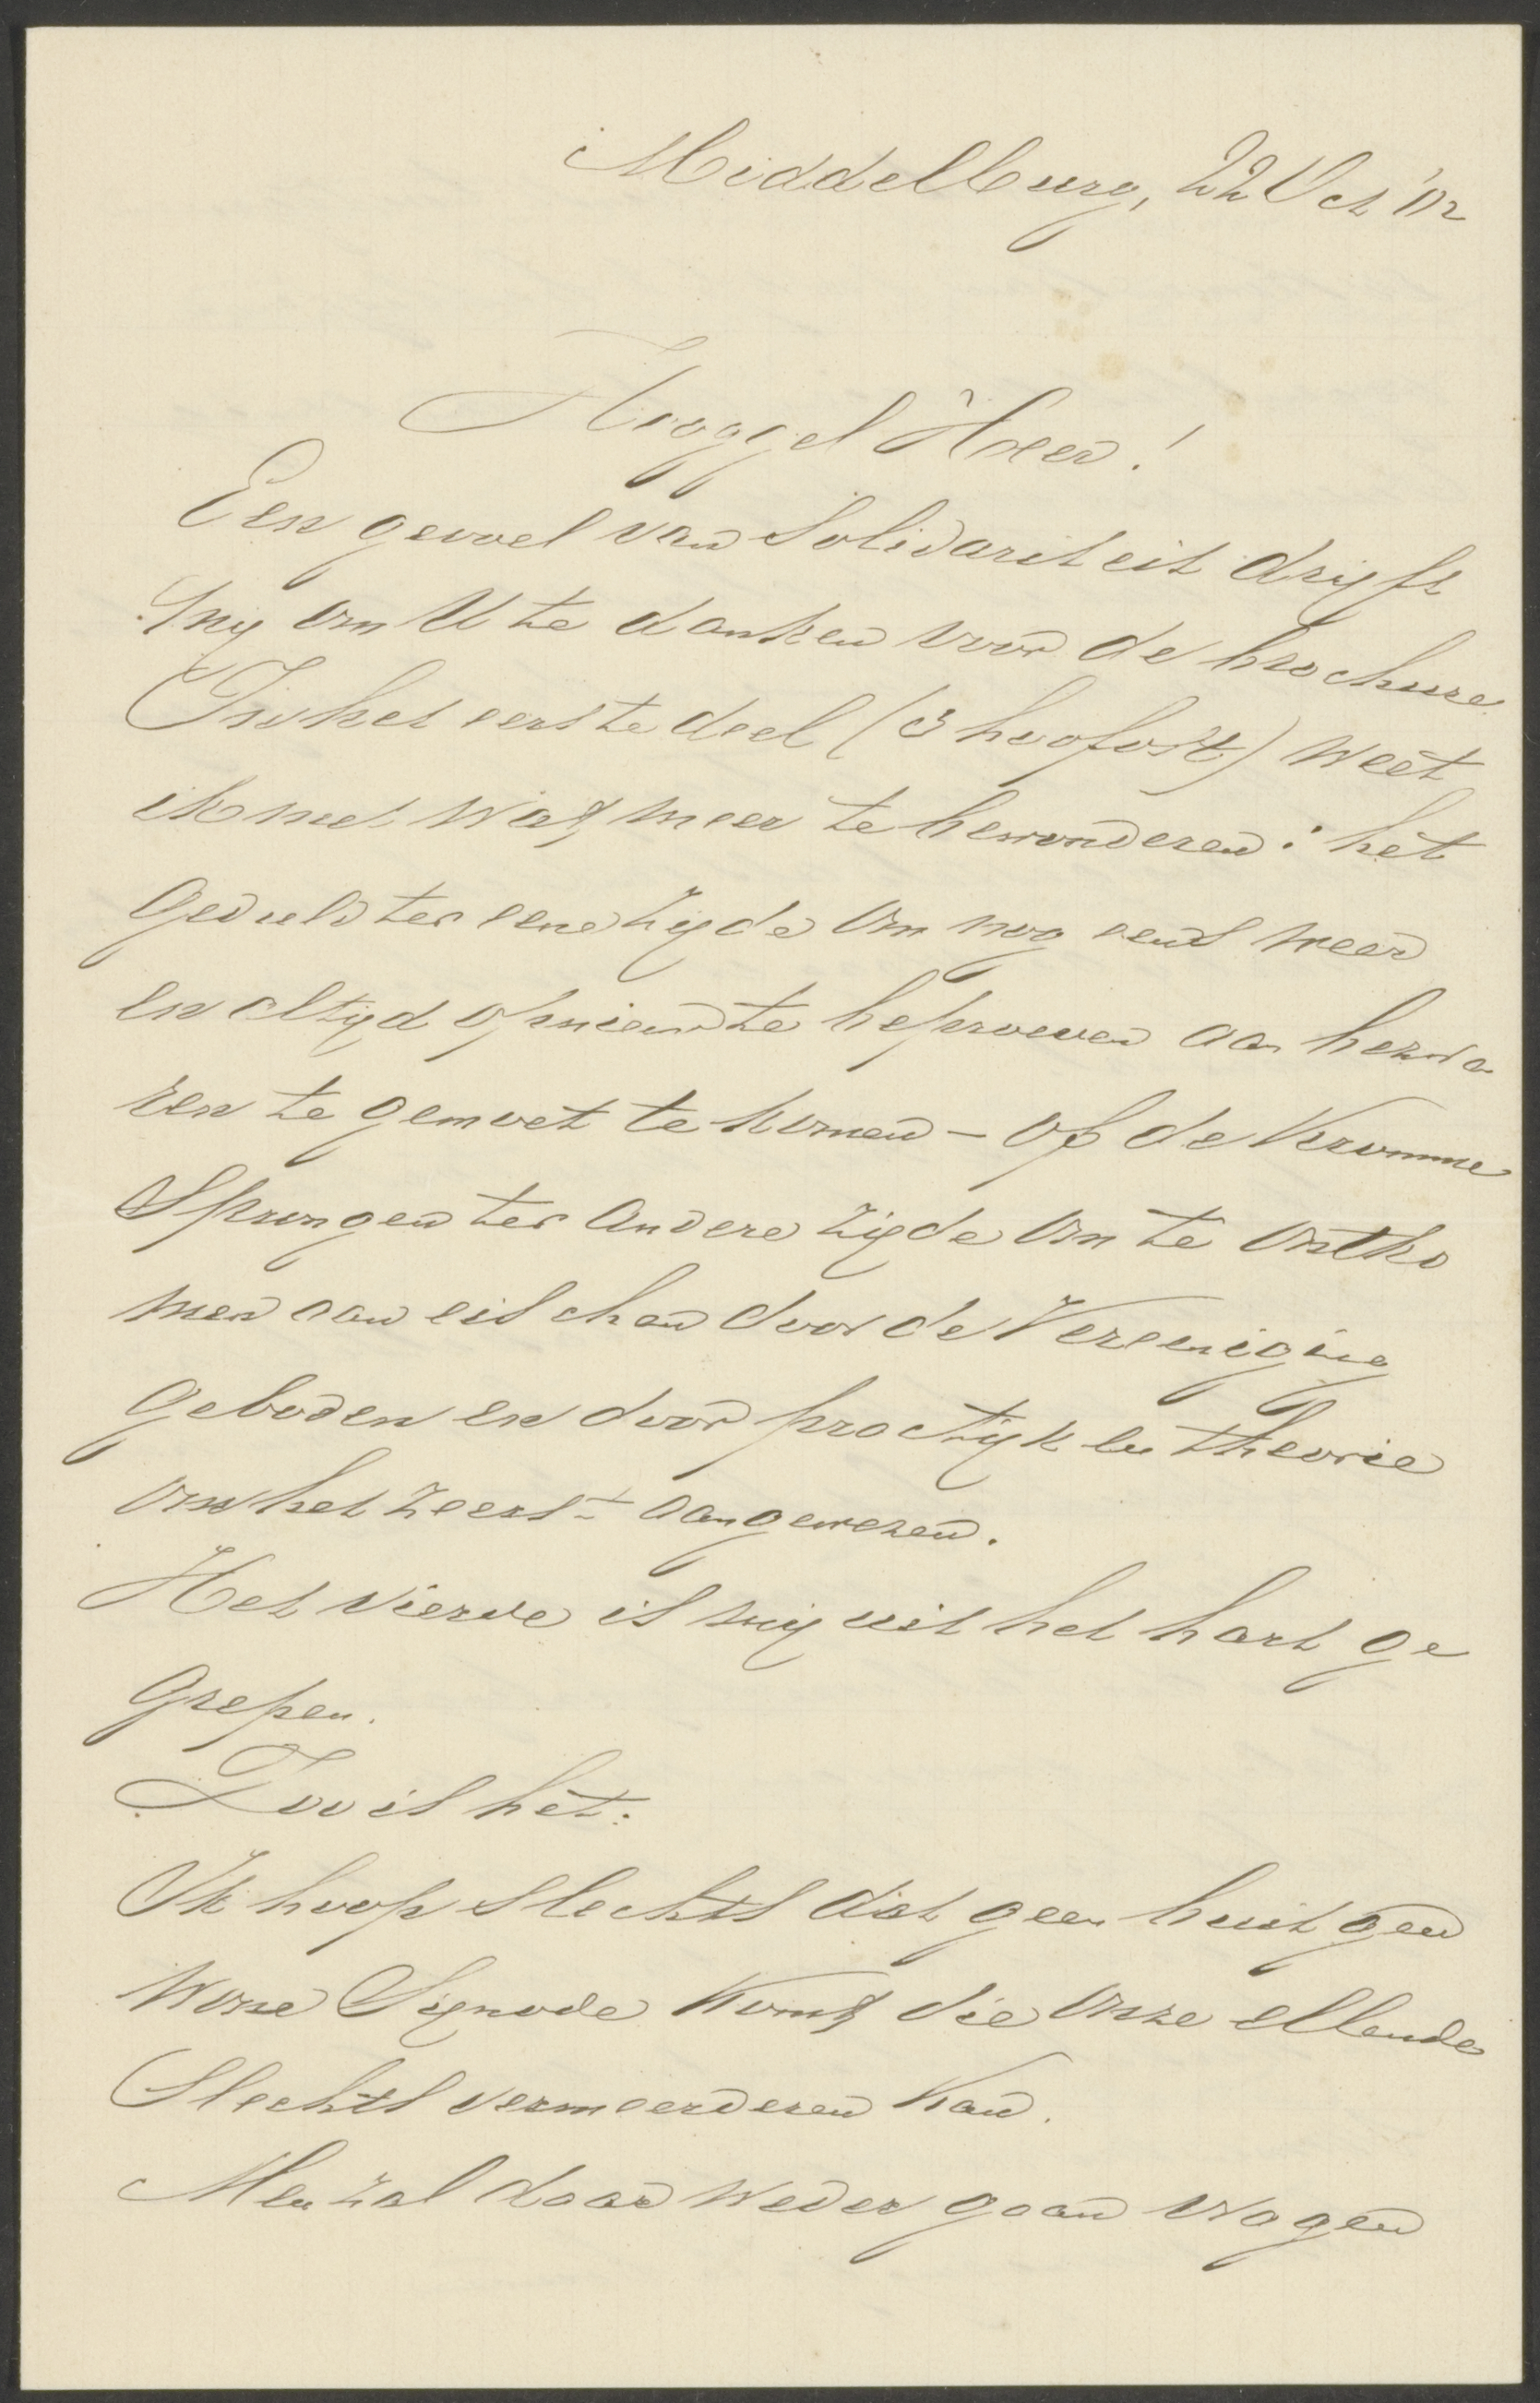 Middelburg, 22 Oct '02
Hooggel Heer!
Een gevoel van solidariteit drijft
mij om U te danken voor de brochure
In het eerste deel (3 hoofdst) weet
ik niet wat meer te bewonderen: het
geduld ter eene zijde om nog eens weer
en altijd opnieuw te beproeven aan bezwa
ren te gemoet te komen – of de kromme
sprongen ter andere zijde om te ontko
men aan eischen door de Vereeniging
geboden en door practijk en theorie
om het zeerst aangewezen.
Het vierde is mij uit het hart ge
grepen.
Zoo is het.
Ik hoop slechts dat geen buitgen
wone Synode komt die onze ellende
slechts vermeerderen kan.
Men zal daar weder gaan vragen